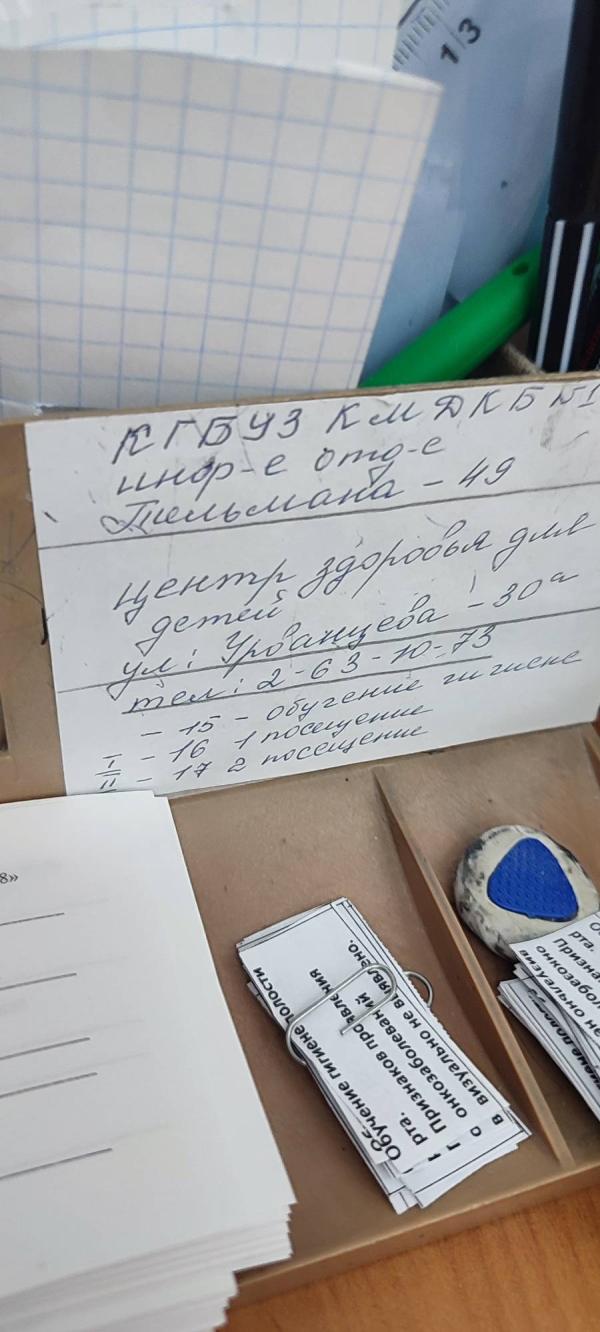 13
КГБУЗ КМДКБ №1
инфр-е отд-е
Тельмана - 49
центр здоровья для
детей
ул: Урванцева - 30а
тел: 2-63-10-73
- 15 - обучение гигиене
I - 16 1 посещение
II - 17 2 посещение
8»
Обучение гигиене полости
рта.
Признаков проявления
онкозаболеваний
визуально не выявлено.